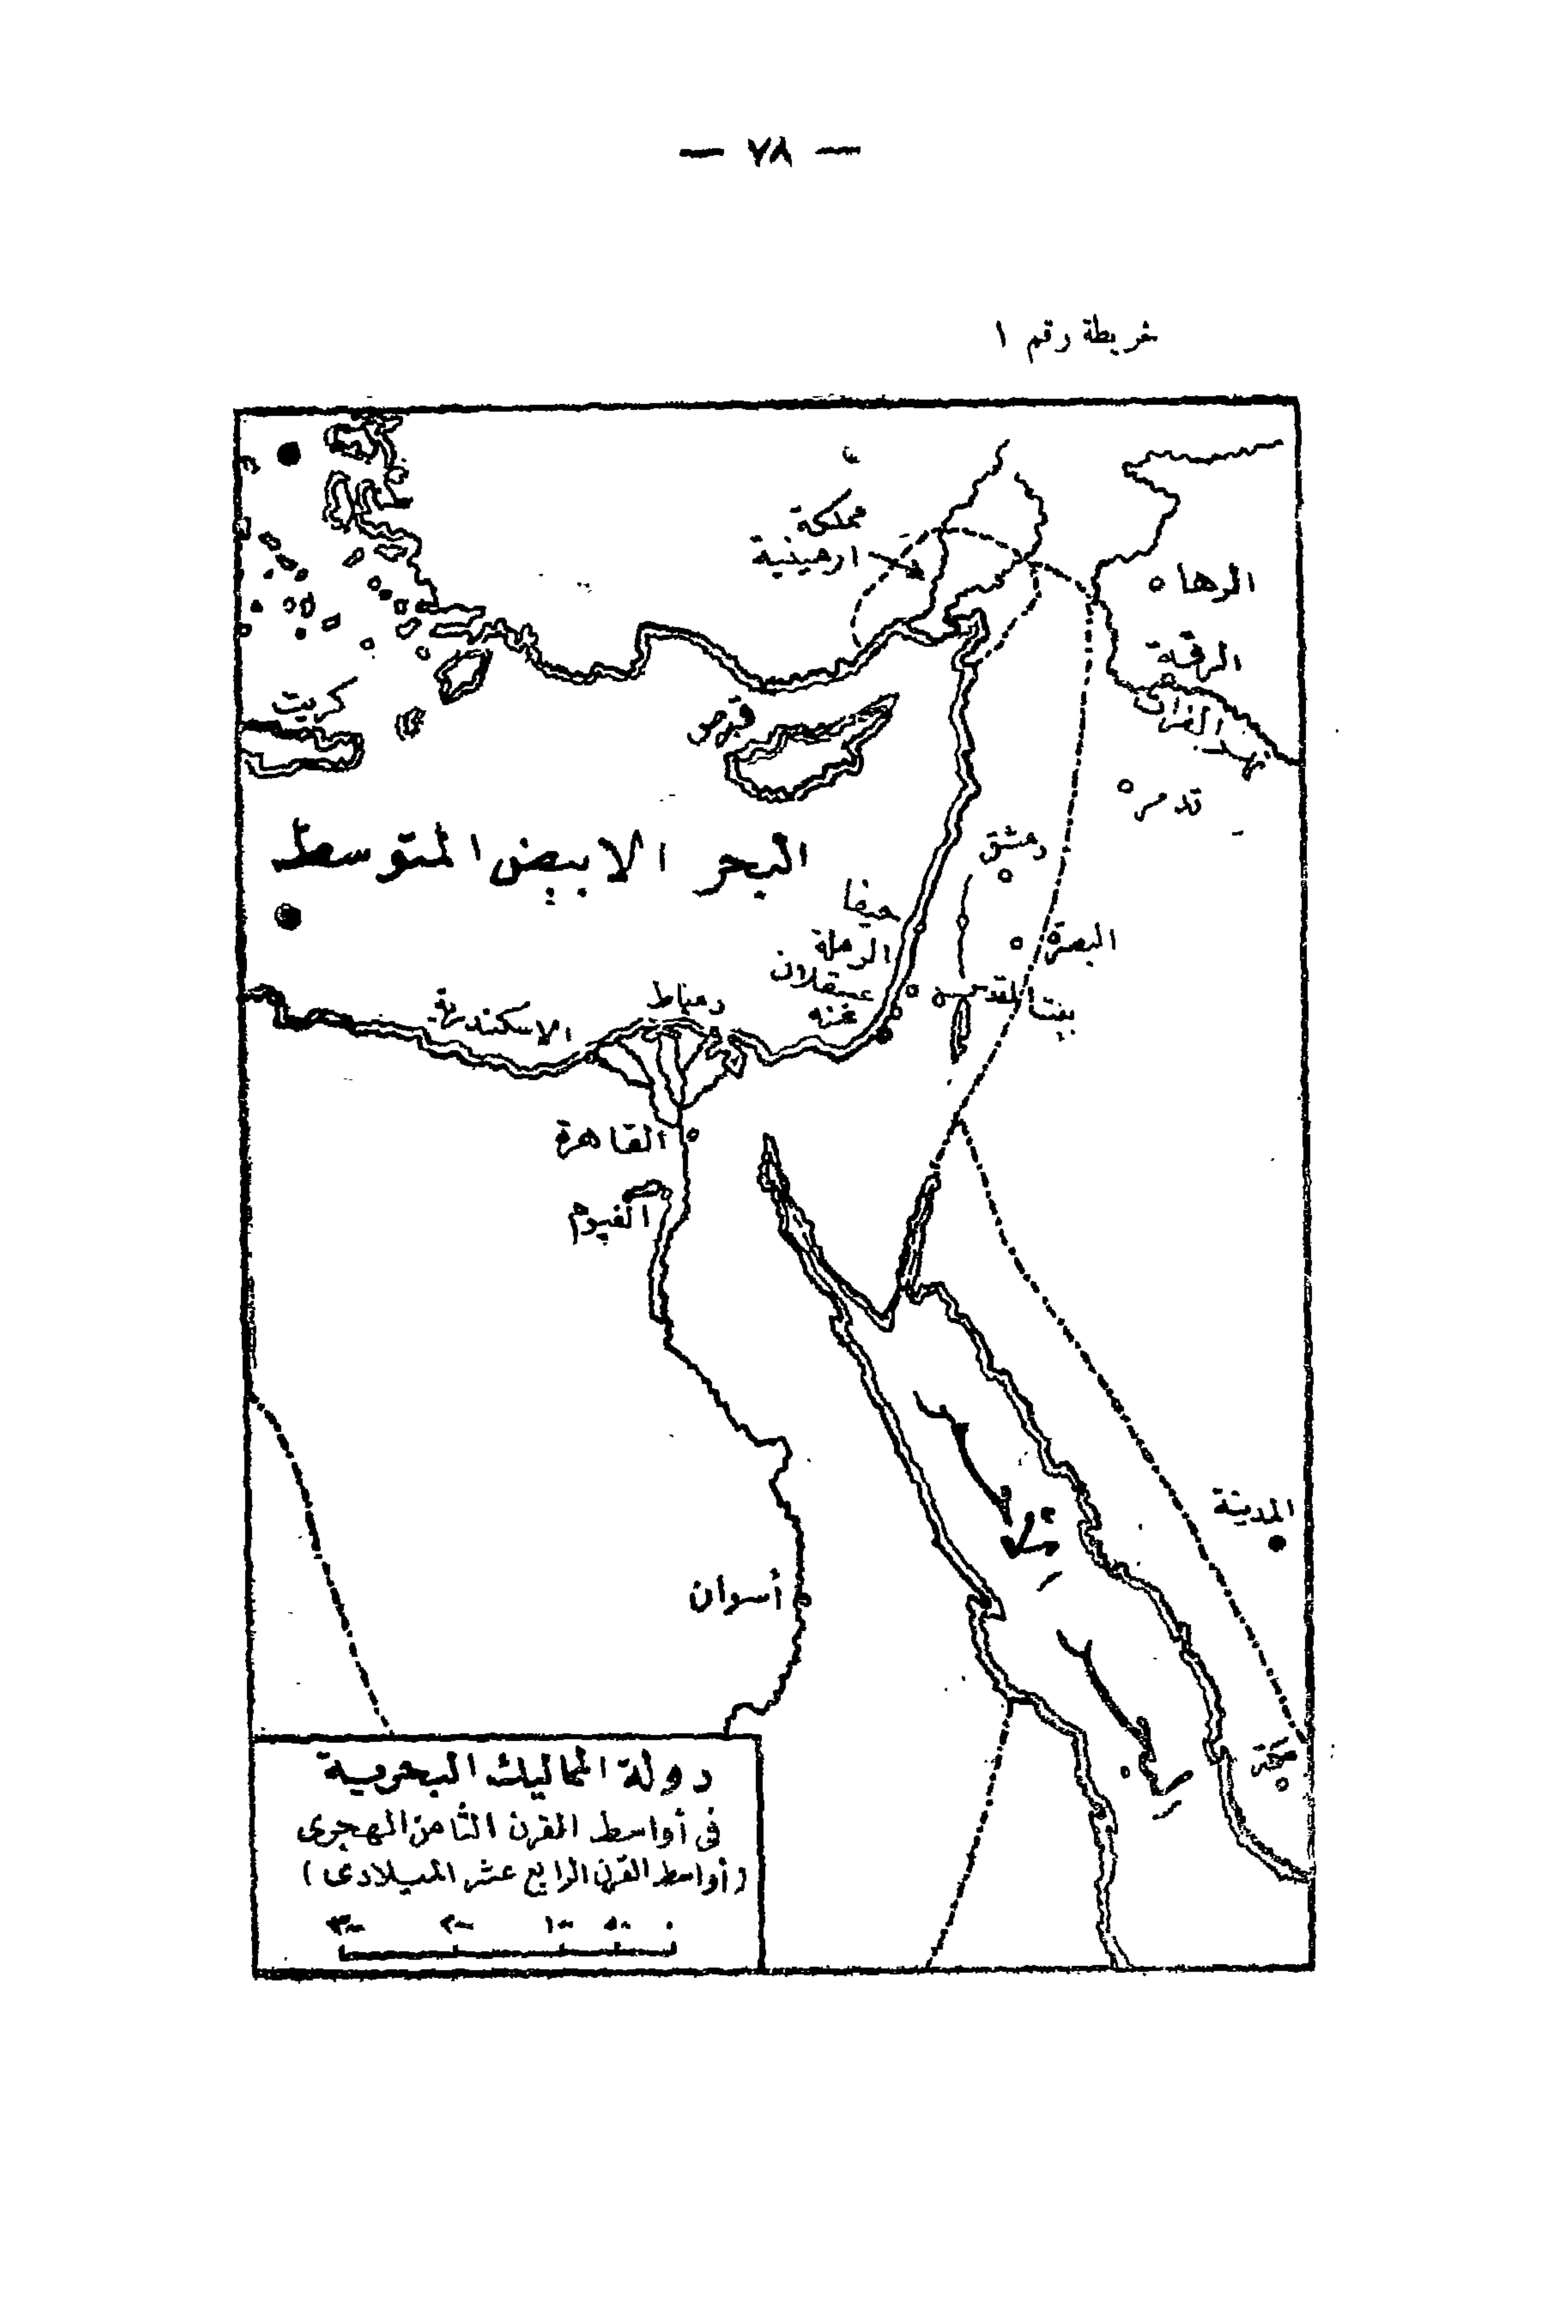 — ٧٨ —
خريطة رقم ١
مملكة
ارمينية
الرها
الرقة
نهر الفرات
كريت
قبرص
تدمر
البحر الابيض المتوسط
دمشق
حيفا
البصرة
الرملة
عسقلان
بيت المقدس
غزه
دمياط
الاسكندرية
القاهرة
الفيوم
المدينة
أسوان
مكة
دولة المماليك البحرية
فى أواسط القرن الثامن الهجرى
(أواسط القرن الرابع عشر الميلادى)
٣٠٠ ٢٠٠ ١٠٠ ٥٠ ٠